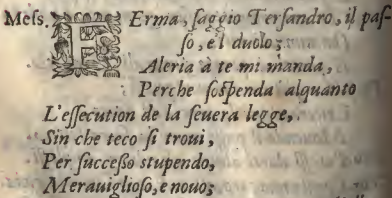 Mess. FErma, saggio Tersandro, il pas-
so, e'l duolo;
Aleria à te mi manda,
Perche sospenda alquanto
L'essecution de la seuera legge,
Sin che teco si troui,
Per successo stupendo,
Merauiglioso, e nouo;